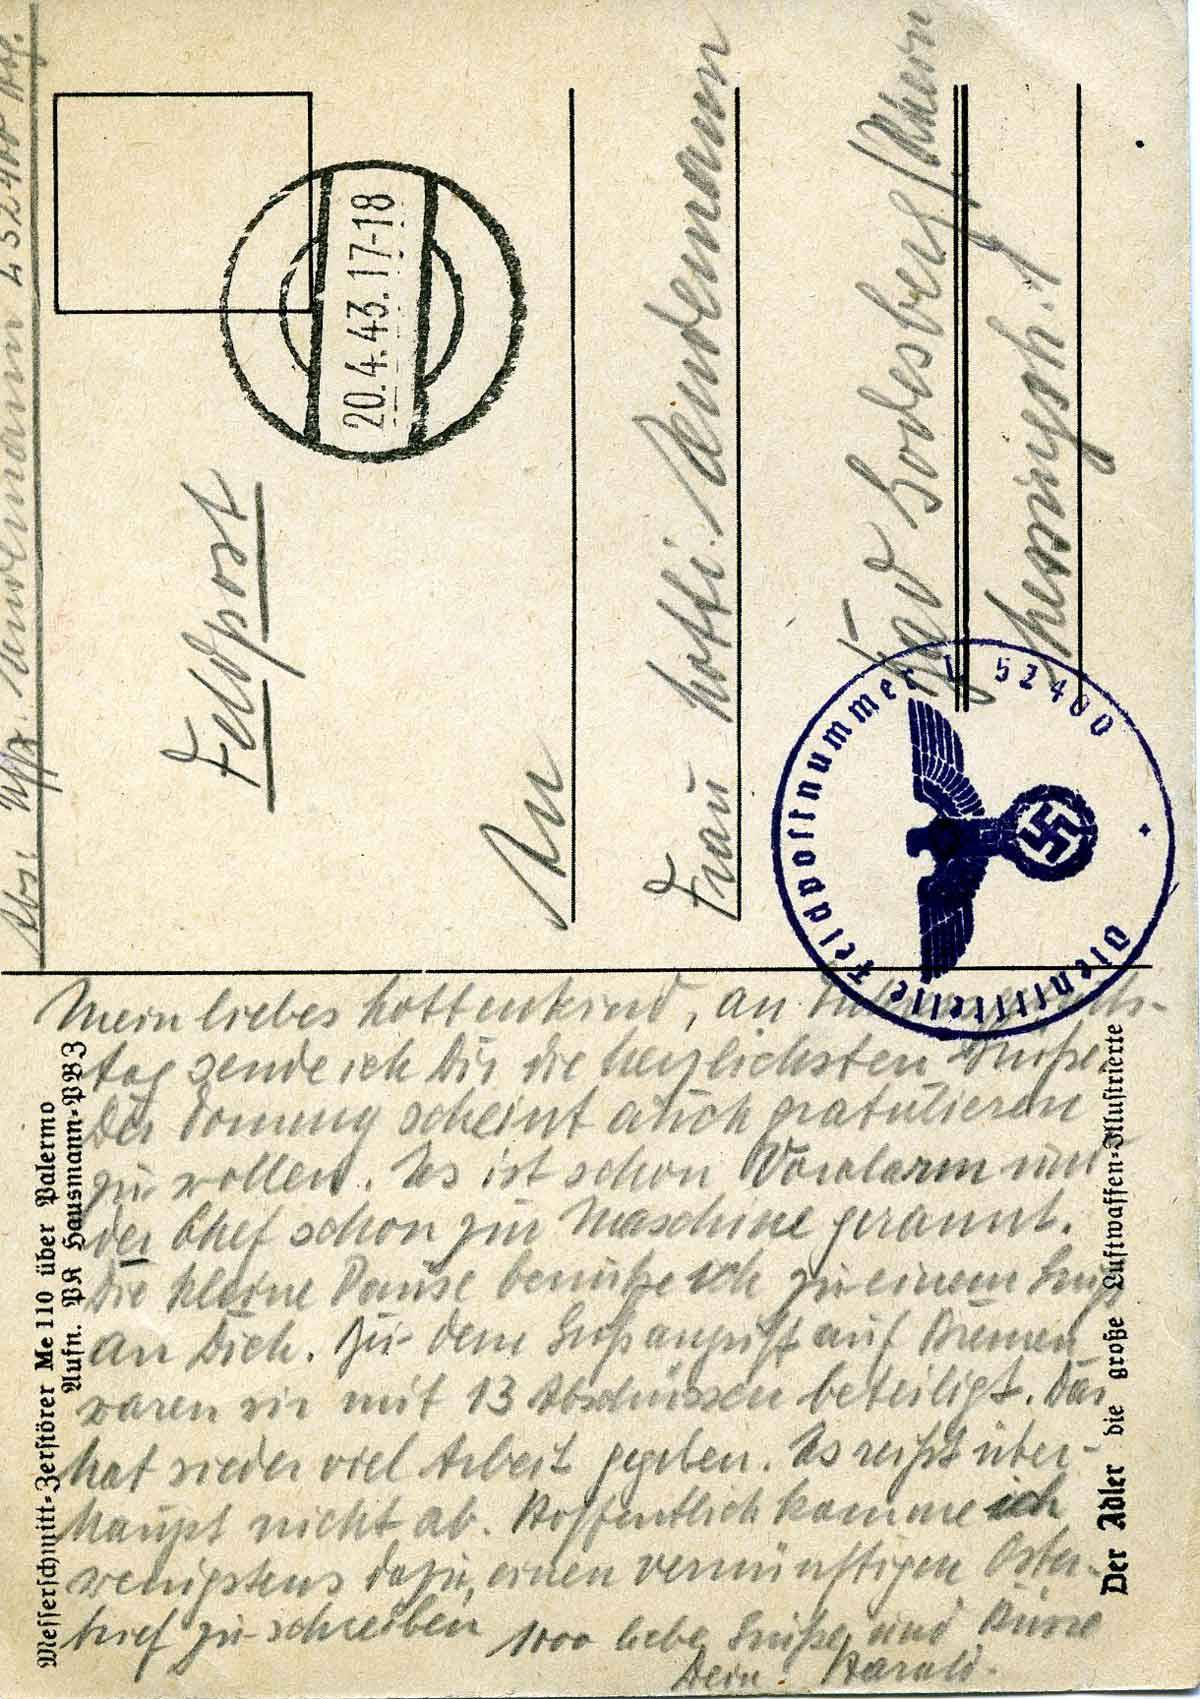 Abs: Uffz. Lendemann L 52400 Lg.
Feldpost
20.4.43.17-18
An
Frau Lotti Lendemann
Bad Godesberg/Rhein
Lessingstr. 1
Dienststelle Feldpostnummer L 52400
Mein liebes Lottenkind, an
tag sende ich Dir die herzlichsten Grüße.
Der Tommy scheint auch gratulieren
zu wollen. Es ist schon Voralarm und
der Chef schon zur Maschine gerannt.
Die kleine Pause benutze ich zu einem Gruß
an Dich. Zu dem Großangriff auf Bremen
waren wir mit 13 Abschüssen beteiligt. Das
hat wieder viel Arbeit gegeben. Es reißt über-
haupt nicht ab. Hoffentlich komme ich
wenigstens dazu, einen vernünftigen Oster-
brief zu schreiben
1000 liebe Grüße und Küsse
Dein Harald.
Messerschmitt-Zerstörer Me 110 über Palermo
Aufn. PK Hausmann-PBZ
Der Adler die große Luftwaffen-Illustrierte